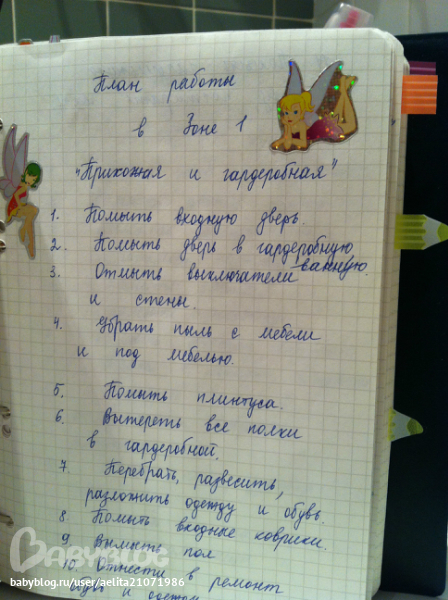 План работы
в Зоне 1
"Прихожая и гардеробная"
1. Помыть входную дверь.
2. Помыть дверь в гардеробную
ванную.
3. Отмыть выключатели
и стены.
4. Убрать пыль с мебели
и под мебелью.
5. Помыть плинтуса.
6. Вытереть все полки
в гардеробной.
7. Перебрать, развесить,
разложить одежду и обувь.
8. Помыть входные коврики.
9. Вымыть пол
10. Отнести в ремонт
обувь и одежду
BABYBLOG
babyblog.ru/user/aelita21071986